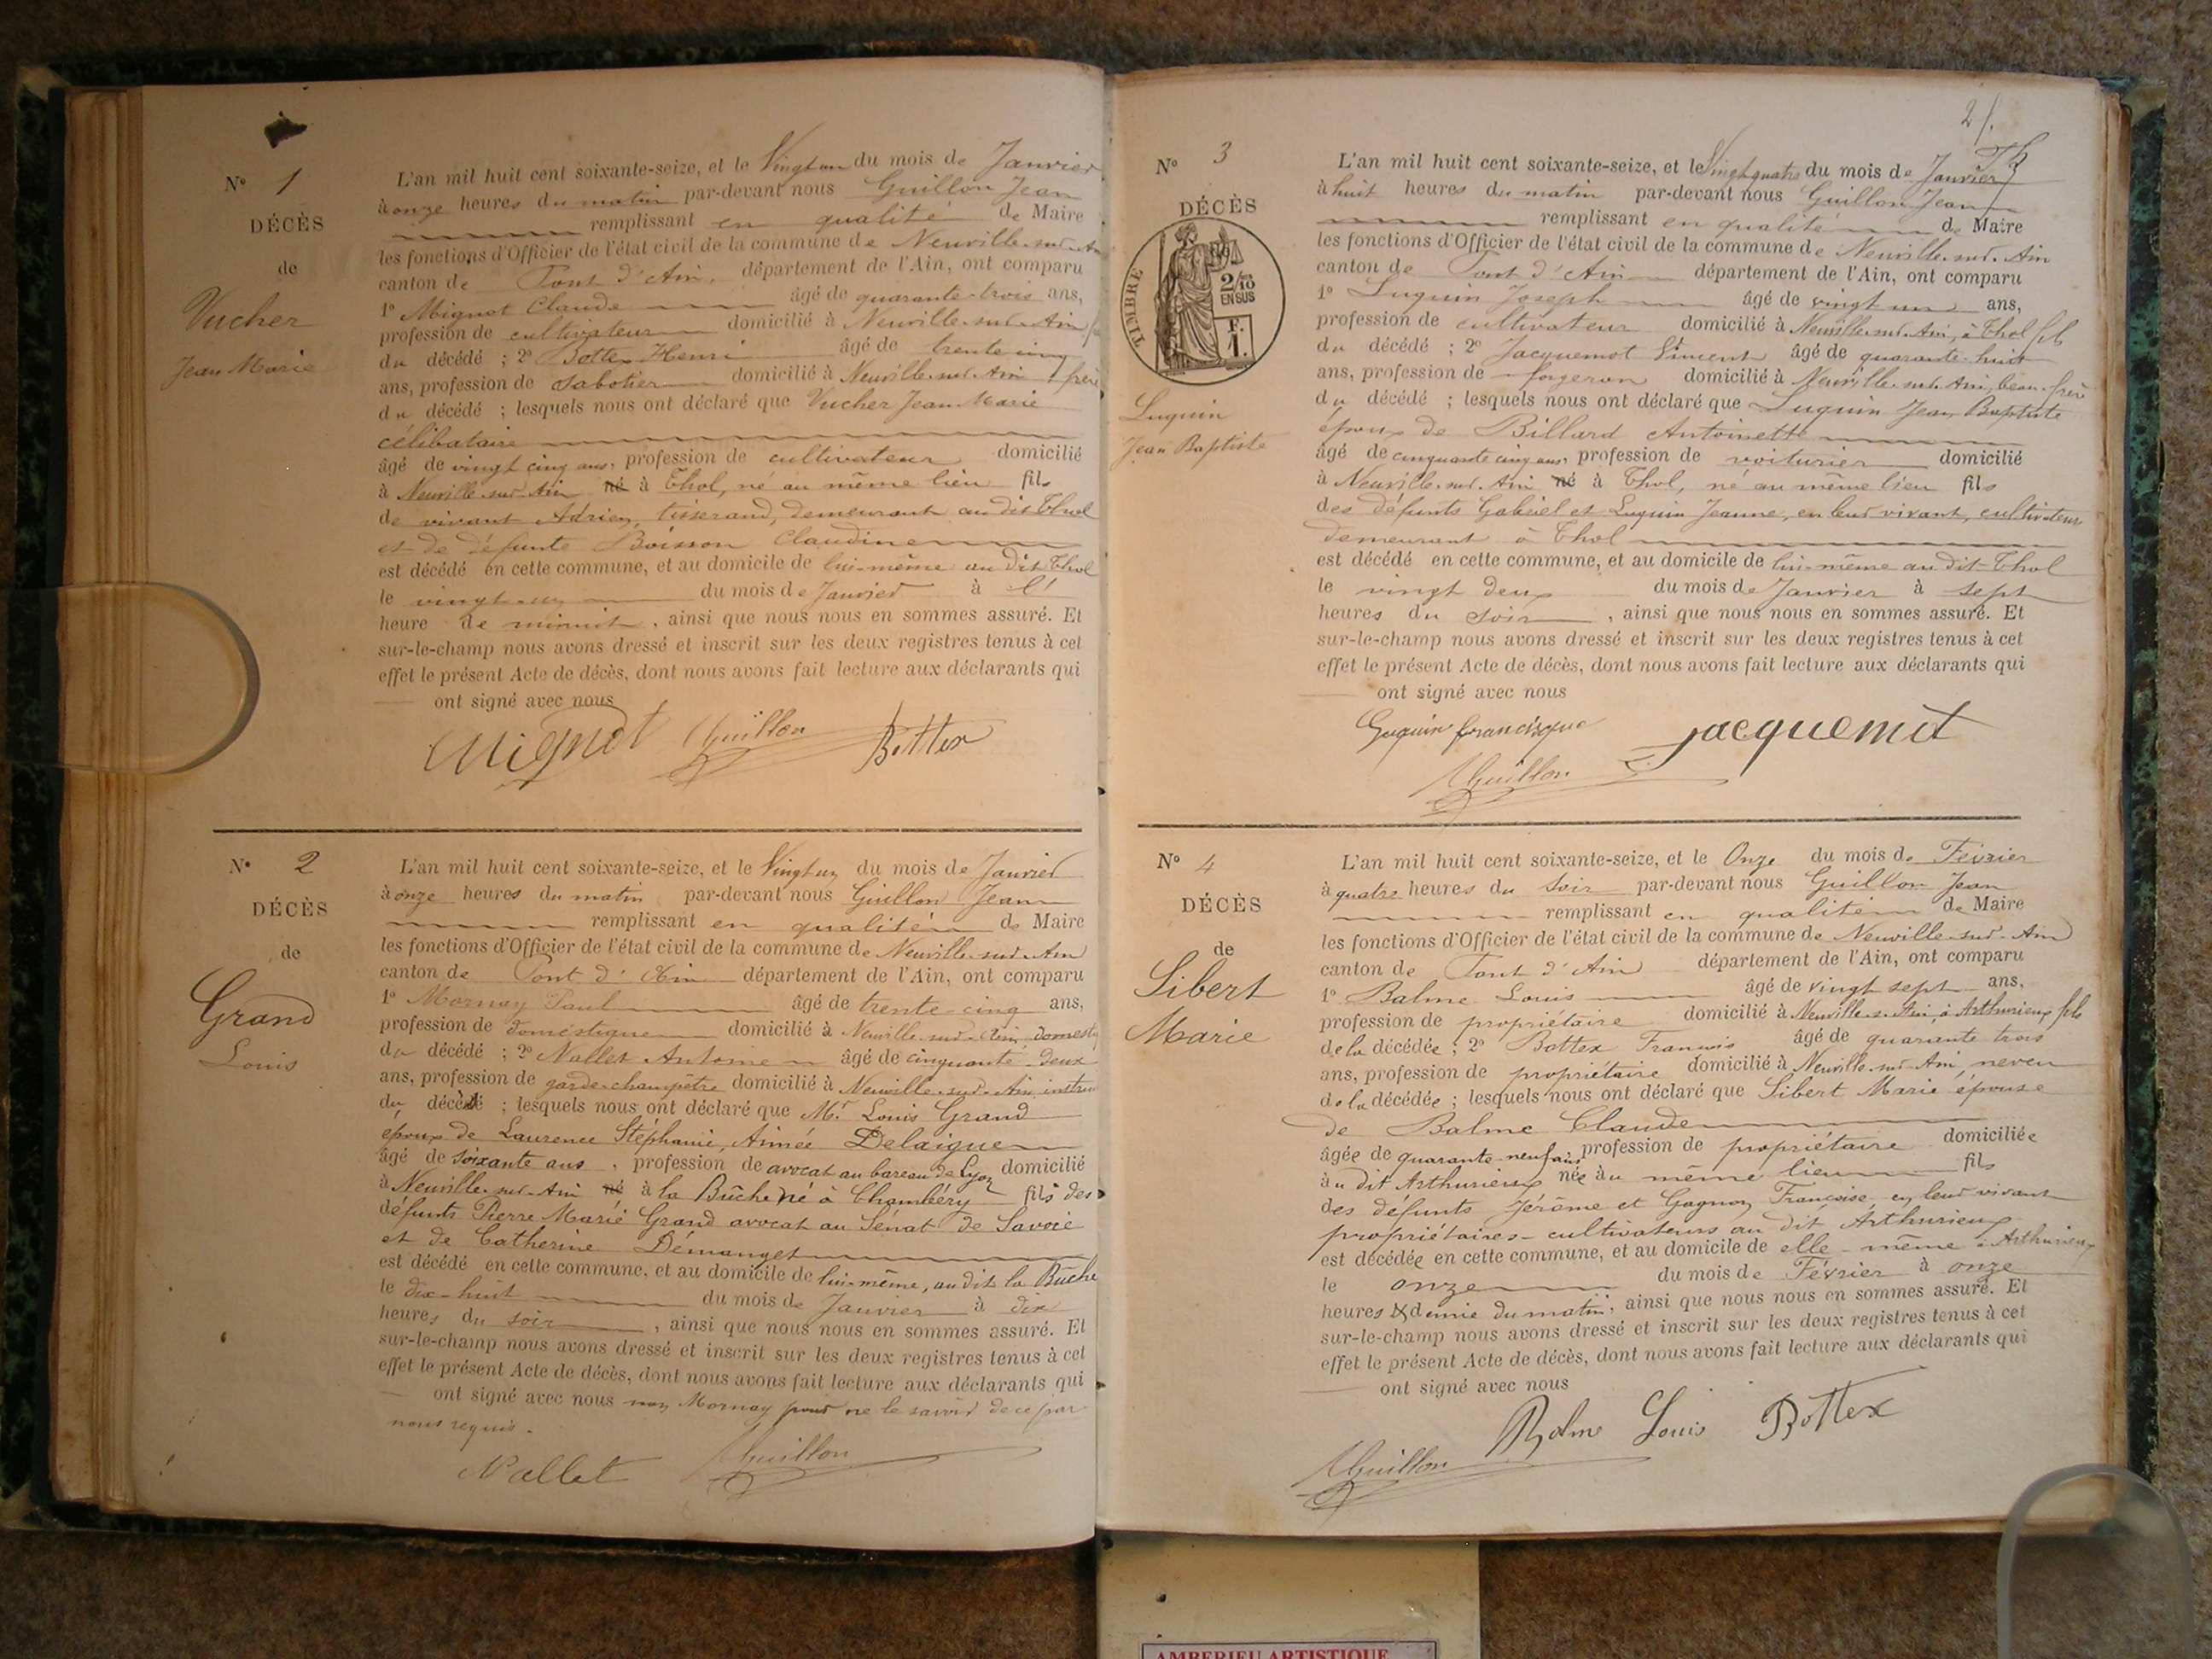 N° 1
DÉCÈS
de
Vucher
Jean Marie
L'an mil huit cent soixante-seize, et le Vingt un du mois de Janvier
à onze heures du matin par-devant nous Guillon Jean
remplissant en qualité de Maire
les fonctions d'Officier de l'état civil de la commune de Neuville-sur-Ain
canton de Pont d'Ain, département de l'Ain, ont comparu
1° Mignot Claude âgé de quarante-trois ans,
profession de cultivateur domicilié à Neuville-sur-Ain
du décédé ; 2° Bottex Henri âgé de trente cinq
ans, profession de sabotier domicilié à Neuville-sur-Ain frère
du décédé ; lesquels nous ont déclaré que Vucher Jean Marie
célibataire
âgé de vingt cinq ans, profession de cultivateur domicilié
à Neuville-sur-Ain né à Thol, né au même lieu fils
de vivant Adrien, tisserand, demeurant au dit Thol
et de défunte Boisson Claudine
est décédé en cette commune, et au domicile de lui-même au dit Thol
le vingt-un du mois de Janvier à l'
heure de minuit, ainsi que nous nous en sommes assuré. Et
sur-le-champ nous avons dressé et inscrit sur les deux registres tenus à cet
effet le présent Acte de décès, dont nous avons fait lecture aux déclarants qui
ont signé avec nous
Mignot Guillon Bottex
N° 2
DÉCÈS
de
Grand
Louis
L'an mil huit cent soixante-seize, et le Vingt un du mois de Janvier
à onze heures du matin par-devant nous Guillon Jean
remplissant en qualité de Maire
les fonctions d'Officier de l'état civil de la commune de Neuville-sur-Ain
canton de Pont d'Ain département de l'Ain, ont comparu
1° Mornay Paul âgé de trente-cinq ans,
profession de domestique domicilié à Neuville-sur-Ain, domestiq
du décédé ; 2° Nallet Antoine âgé de cinquante-deux
ans, profession de garde-champêtre domicilié à Neuville-sur-Ain,
du décédé ; lesquels nous ont déclaré que Mr Louis Grand
époux de Laurence Stéphanie, Aimée Delaigue
âgé de soixante ans, profession de avocat au bareau de Lyon domicilié
à Neuville-sur-Ain né à la Bûche né à Chambéry fils des
défunts Pierre Marie Grand avocat au Sénat de Savoie
et de Catherine Démanget
est décédé en cette commune, et au domicile de lui-même, au dit la Bûche
le dix-huit du mois de Janvier à dix
heures du soir, ainsi que nous nous en sommes assuré. Et
sur-le-champ nous avons dressé et inscrit sur les deux registres tenus à cet
effet le présent Acte de décès, dont nous avons fait lecture aux déclarants qui
ont signé avec nous non Mornay pour ne le savoir de ce par
nous requis.
Nallet Guillon
2
N° 3
DÉCÈS
TIMBRE
2/10
EN SUS
F.
1.
Luquin
Jean Baptiste
L'an mil huit cent soixante-seize, et le Vingt quatre du mois de Janvier
à huit heures du matin par-devant nous Guillon Jean
remplissant en qualité de Maire
les fonctions d'Officier de l'état civil de la commune de Neuville-sur-Ain
canton de Pont d'Ain département de l'Ain, ont comparu
1° Luquin Joseph âgé de vingt un ans,
profession de cultivateur domicilié à Neuville-sur-Ain, à Thol fils
du décédé ; 2° Jacquemot Vincent âgé de quarante-huit
ans, profession de forgeron domicilié à Neuville-sur-Ain, beau-frère
du décédé ; lesquels nous ont déclaré que Luquin Jean Baptiste
époux de Billard Antoinette
âgé de cinquante cinq ans, profession de voiturier domicilié
à Neuville-sur-Ain né à Thol, né au même lieu fils
des défunts Gabriel et Luquin Jeanne, en leur vivant, cultivateurs
demeurant à Thol
est décédé en cette commune, et au domicile de lui-même au dit-Thol
le vingt deux du mois de Janvier à sept
heures du soir, ainsi que nous nous en sommes assuré. Et
sur-le-champ nous avons dressé et inscrit sur les deux registres tenus à cet
effet le présent Acte de décès, dont nous avons fait lecture aux déclarants qui
ont signé avec nous
Luquin francisque Jacquemot
Guillon
N° 4
DÉCÈS
de
Sibert
Marie
L'an mil huit cent soixante-seize, et le Onze du mois de Février
à quatre heures du soir par-devant nous Guillon Jean
remplissant en qualité de Maire
les fonctions d'Officier de l'état civil de la commune de Neuville-sur-Ain
canton de Pont d'Ain département de l'Ain, ont comparu
1° Balme Louis âgé de vingt sept ans,
profession de propriétaire domicilié à Neuville-s-Ain, à Arthurieux fils
de la décédée ; 2° Bottex François âgé de quarante trois
ans, profession de propriétaire domicilié à Neuville-sur-Ain, neveu
de la décédée ; lesquels nous ont déclaré que Sibert Marie épouse
de Balme Claude
âgée de quarante-neuf ans, profession de propriétaire domiciliée
au dit Arthurieux née au même lieu fils
des défunts Jérôme et Gagnon Françoise en leur vivant
propriétaires-cultivateurs au dit Arthurieux
est décédée en cette commune, et au domicile de elle-même à Arthurieux
le onze du mois de Février à onze
heures & demie du matin, ainsi que nous nous en sommes assuré. Et
sur-le-champ nous avons dressé et inscrit sur les deux registres tenus à cet
effet le présent Acte de décès, dont nous avons fait lecture aux déclarants qui
ont signé avec nous
Guillon Balme Louis Bottex
AMBERIEU ARTISTIQUE